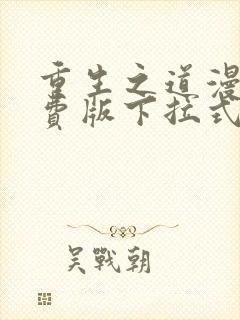 重生之道漫
费版下拉式
吴戰朝